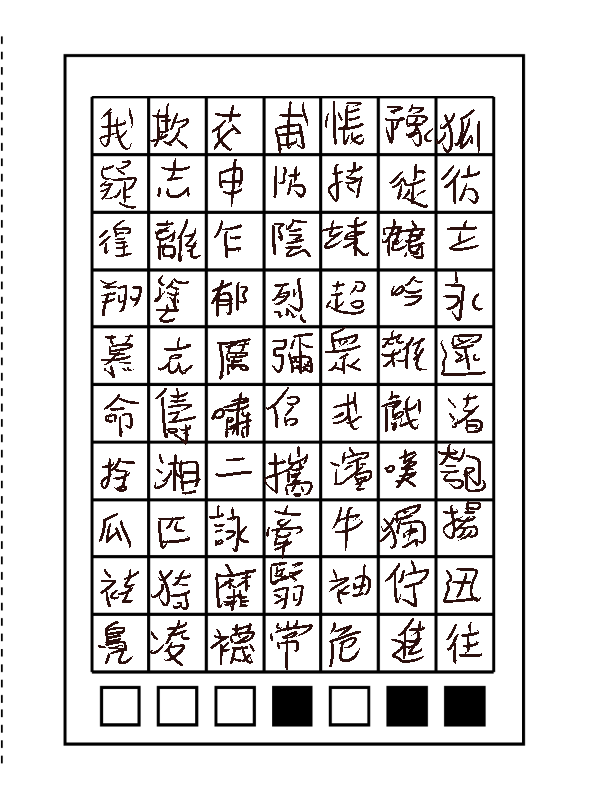 我欺交甫悵豫狐
疑志申防持徙彷
徨離乍陰竦鶴立
翔塗郁烈超吟永
慕哀厲彌衆雜遝
命儔嘯侶或戲渚
拾湘二攜濱嘆匏
瓜匹詠牽牛獨揚
袿猗靡翳袖佇迅
鳧凌襪常危進往